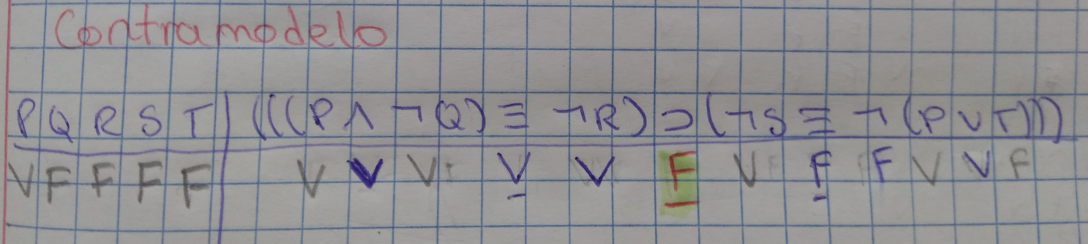 Contramodelo
P Q R S T | (((P ∧ ¬Q) ≡ ¬R) ⊃ (¬S ≡ ¬(P ∨ T)))
V F F F F | V V V V V F V F F V V F